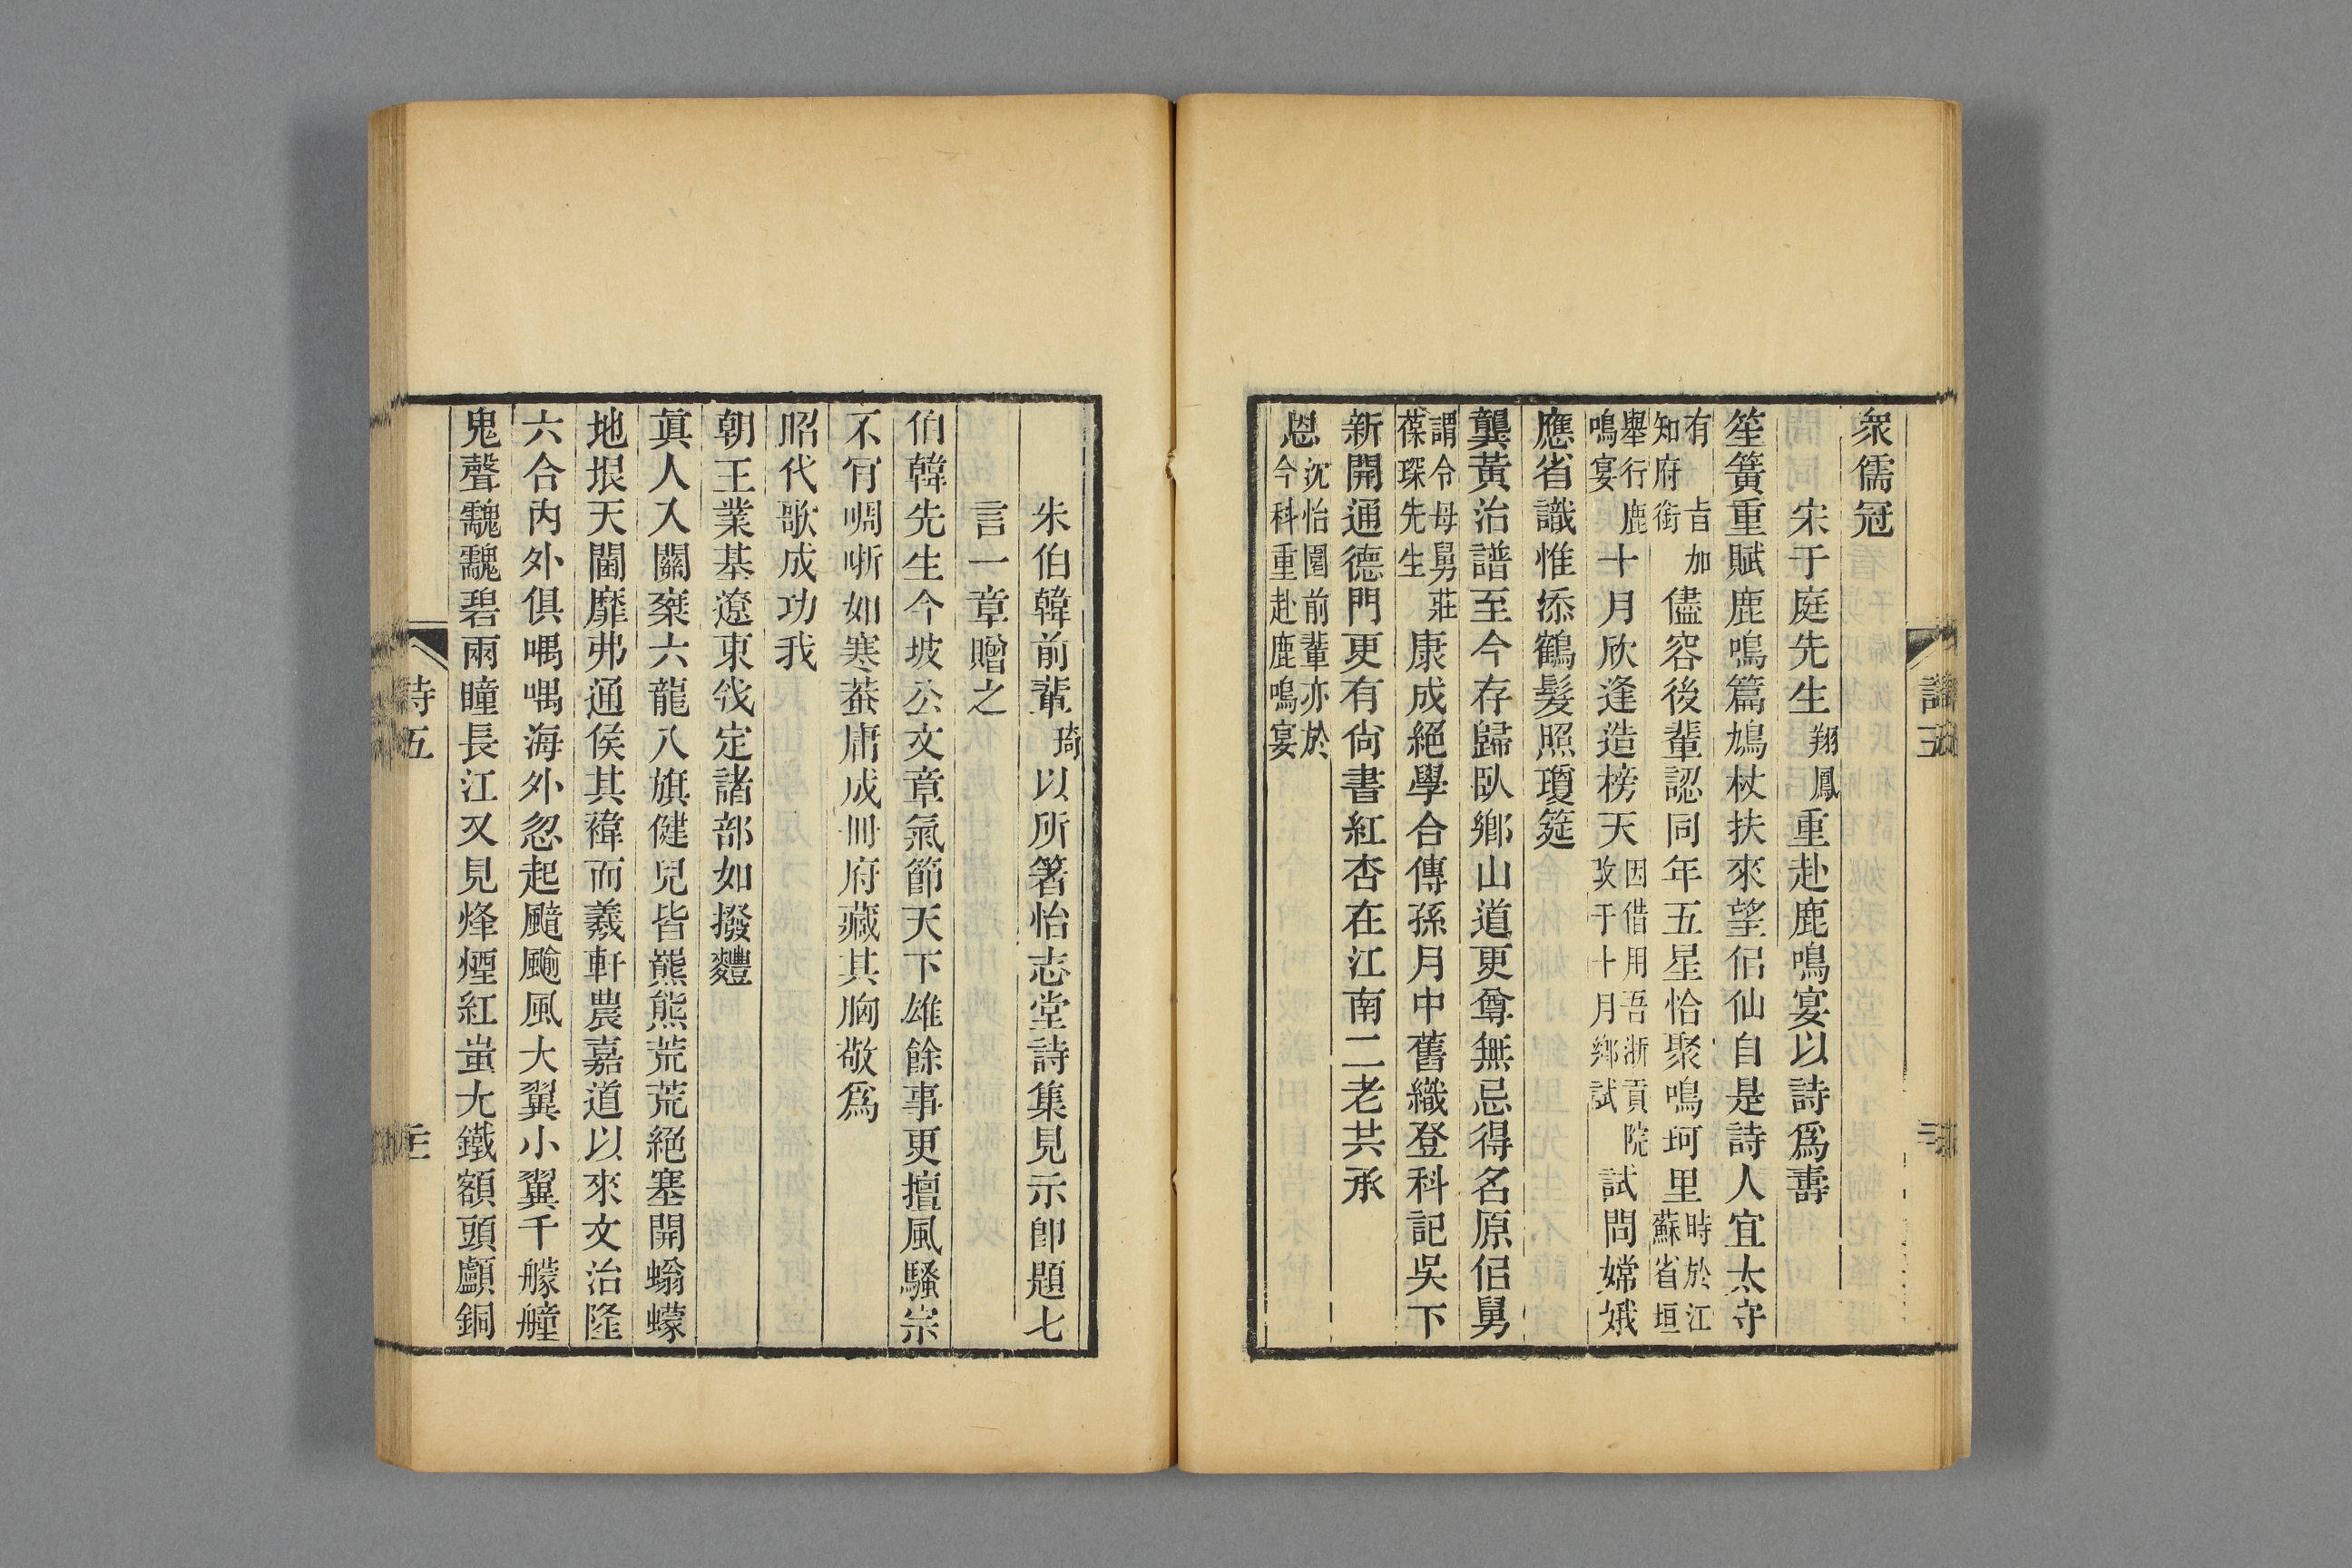 衆儒冠
宋于庭先生翔鳳重赴鹿鳴宴以詩爲壽
笙簧重賦鹿鳴篇鳩杖扶來望侣仙自是詩人宜太守
有旨加知府銜儘容後輩認同年五星恰聚鳴珂里時於江蘇省垣
舉行鹿鳴宴十月欣逢造榜天因借用吾浙貢院改于十月鄉試試問嫦娥
應省識惟添鶴髮照瓊筵
龔黃治譜至今存歸臥鄉山道更尊無忌得名原侣舅
謂令母舅莊葆琛先生康成絕學合傳孫月中舊織登科記吳下
新開通德門更有尙書紅杏在江南二老共承
恩沈怡園前輩亦於今科重赴鹿鳴宴
朱伯韓前輩琦以所箸怡志堂詩集見示卽題七
言一章贈之
伯韓先生今坡公文章氣節天下雄餘事更擅風騷宗
不肯啁哳如寒蛩庸成冊府藏其胸敬爲
昭代歌成功我
朝王業基遼東戗定諸部如撥麷
眞人入關乘六龍八旗健兒皆熊熊荒荒絕塞開螉蠓
地垠天闓靡弗通侯其褘而羲軒農嘉道以來文治隆
六合內外俱喁喁海外忽起颶颱風大翼小翼千艨艟
鬼聲䰰䰰碧雨瞳長江又見烽煙紅蚩尤鐵額頭顱銅
詩五